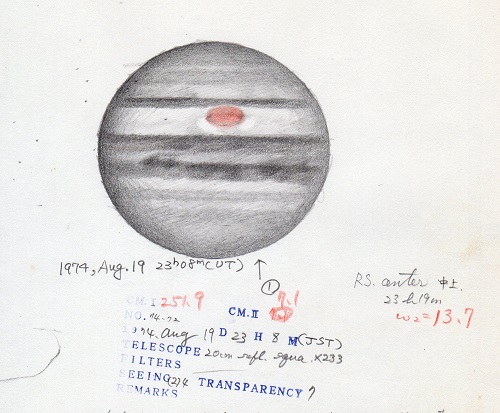 1974, Aug. 19 23h08m(UT) ↑
①
RS. center 中上.
23h19m
ω2=13.7
CM.I 251.9 CM.II 7.1
NO. 74-72
1974. Aug 19 D 23 H 8 M (JST)
TELESCOPE 20cm refl. equa. ×233
FILTERS
SEEING (2)4 TRANSPARENCY 7
REMARKS